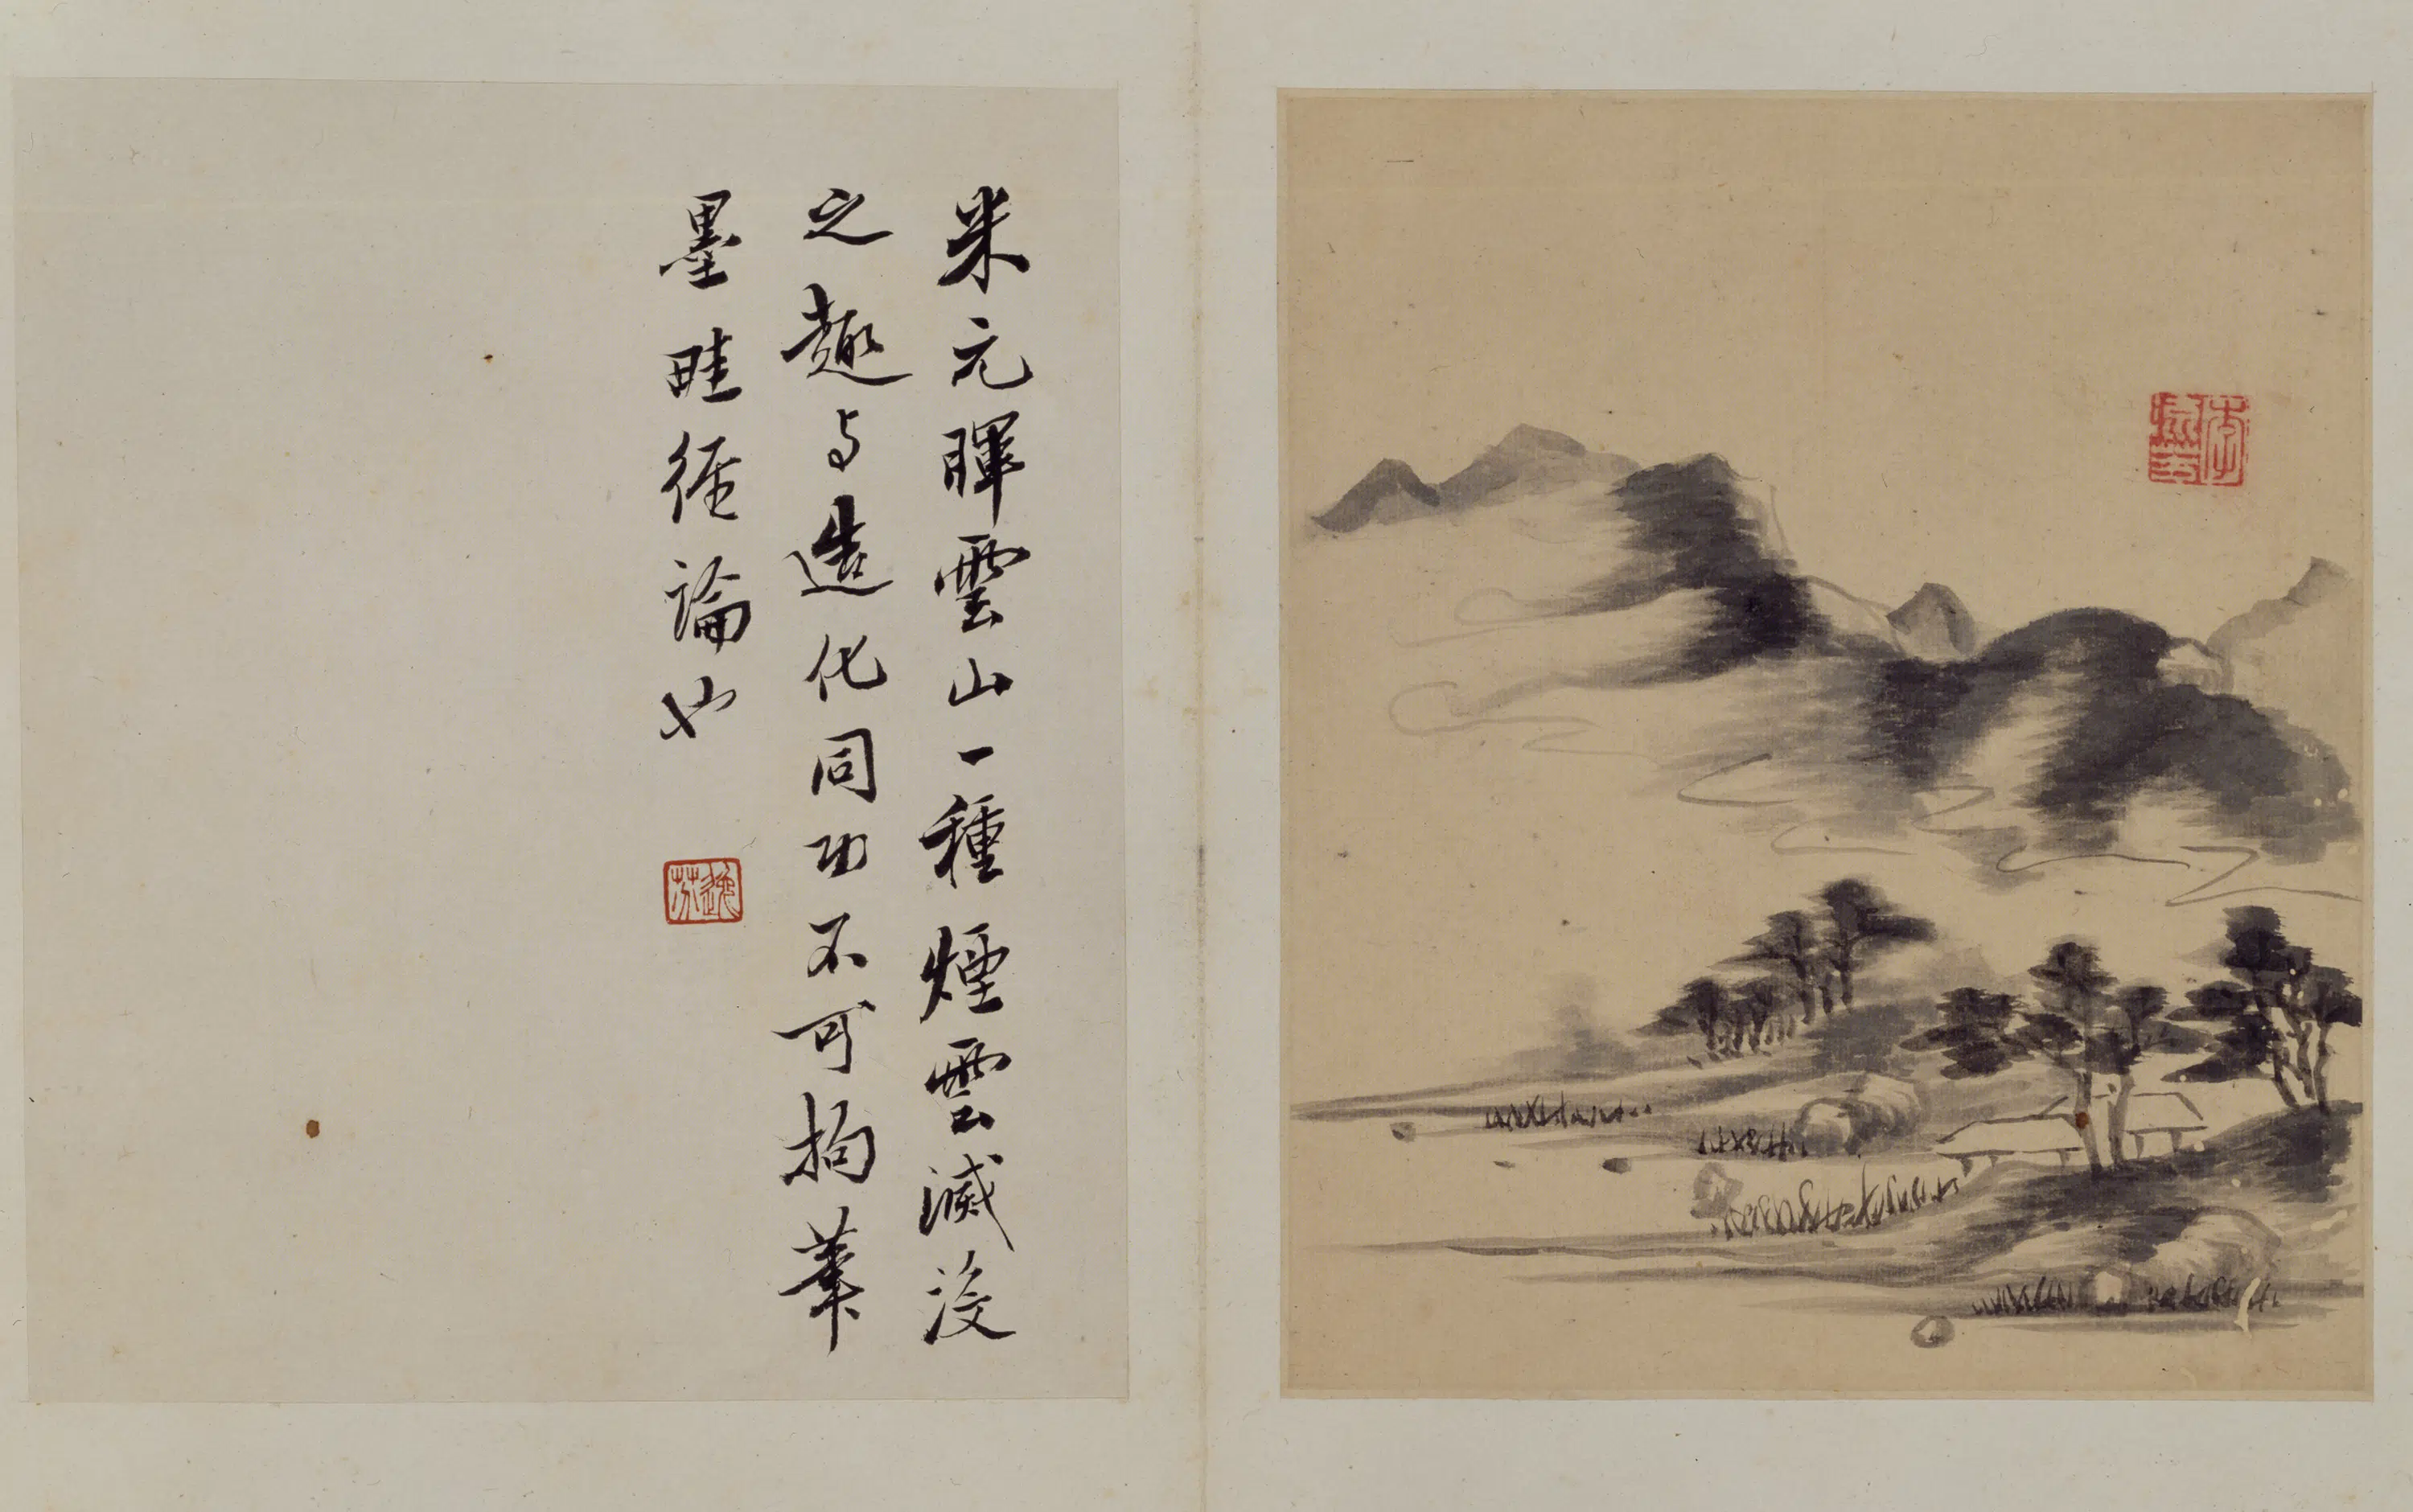 米元暉雲山一種煙雲滅没
之趣与造化同功不可拘筆
墨畦徑論也